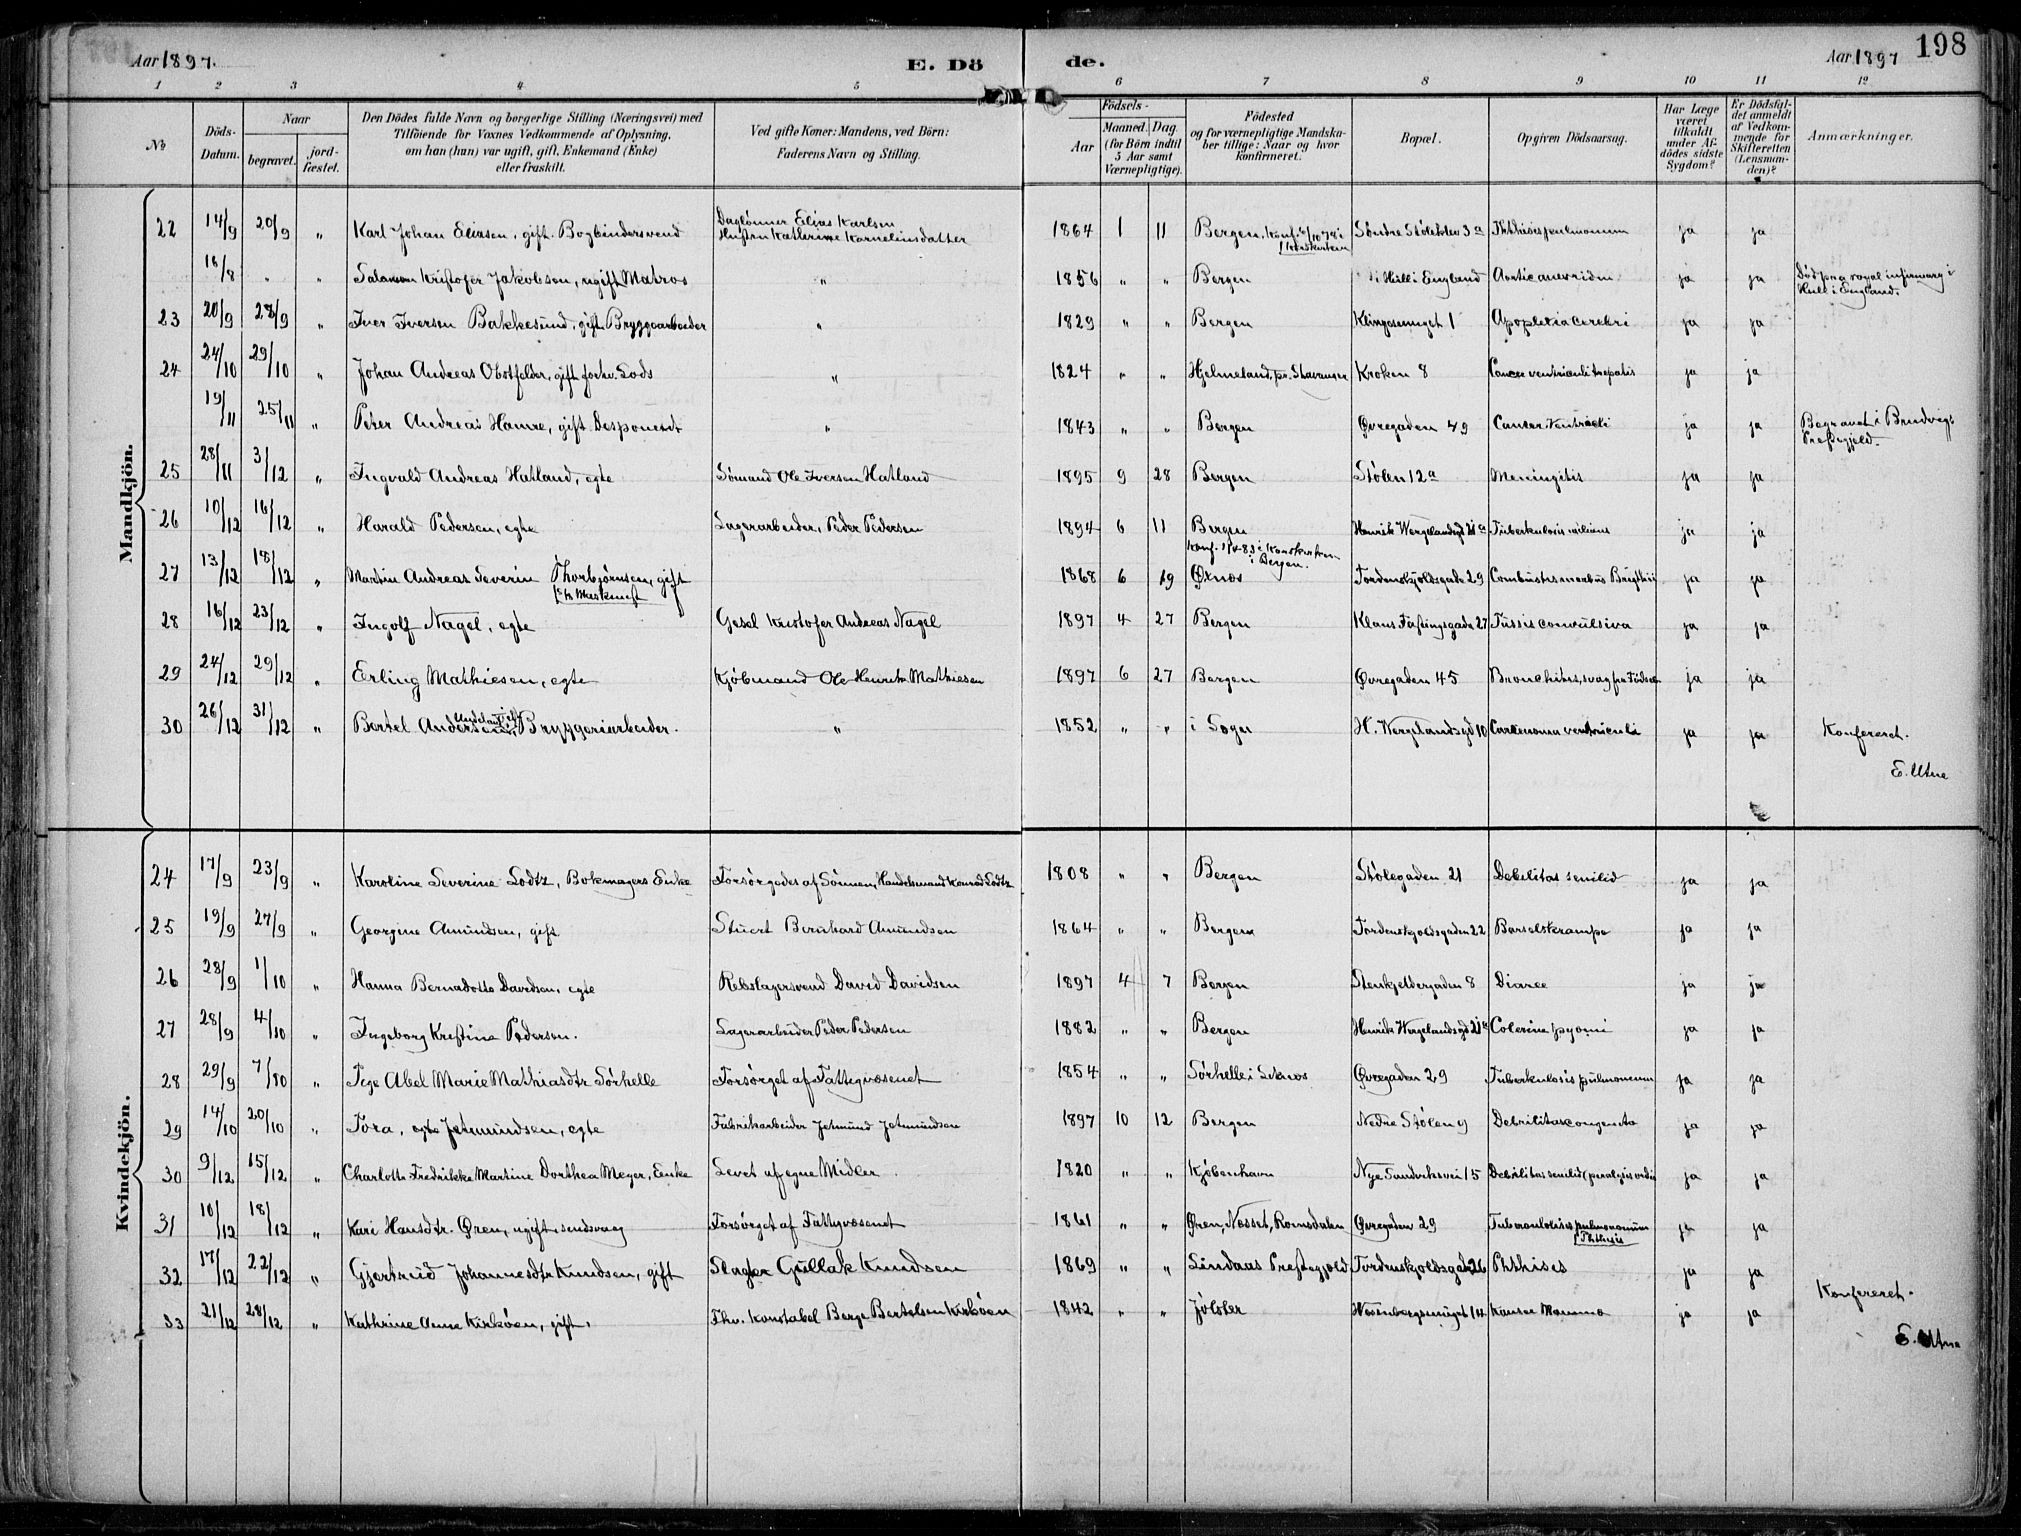 Aar 1897. E. Dö de. Aar 1897 198
1 2 3 4 5 6 7 8 9 10 11 12
No
Döds-Datum.
Naar
begravet.
jord-fæstet.
Den Dödes fulde Navn og borgerlige Stilling (Næringsvei) med
Tilföiende for Voxnes Vedkommende af Oplysning,
om han (hun) var ugift, gift, Enkemand (Enke)
eller fraskilt.
Ved gifte Koner: Mandens, ved Börn:
Faderens Navn og Stilling.
Födsels-
Aar
Maaned. Dag
(for Börn indtil
5 Aar samt
Værnepligtige).
Födested
og for værnepligtige Mandska-
ber tillige: Naar og hvor
konfirmeret.
Bopæl.
Opgiven Dödsaarsag.
Har Læge
været
tilkaldt
under Af-
dödes sidste
Sygdom?
Er Dödsfal-
det anmeldt
af Vedkom-
mende for
Skifteretten
(Lensman-
den)?
Anmærkninger.
Mandkjön.
22 14/9 20/9 " Karl Johan Eliasen, gift. Bogbindersvend Daglønner Elias Karlsen Hustru Katherine Kornelinsdatter 1864 1 11 Bergen, Konf. i Korskirken Søndre Stöletolen 3a Phthisis pulmonum ja ja
18/8 " " Salamon Kristofer Jakobsen, ugift Matros " 1856 " " Bergen i Hull i England Aortic aneurism ja ja Död paa royal infirmary i Hull i England.
23 20/9 28/9 " Iver Iversen Bakkesund, gift Bryggearbeider " 1829 " " Bergen Klingesmuget 1 Apoplexia cerebri ja ja
24 24/10 29/10 " Johan Andreas Obstfelder, gift forhv. Lods " 1824 " " Hjelmeland, pr. Stavanger Kroken 8 Cancer ventriculi & hepatis ja ja
19/11 25/11 " Peter Andreas Hamre, gift Desponent " 1843 " " Bergen Øvregaden 49 Cancer Ventriculi ja ja Begravet i Brudvigs Prestegjeld.
25 28/11 3/12 " Ingvald Andreas Hatland, egte Sömand Ole Iversen Hatland 1895 9 28 Bergen Stölen 12a Meningitis ja ja
26 10/12 16/12 " Harald Pedersen, egte Lagerarbeider, Peder Pedersen 1894 6 11 Bergen Henrik Wergelandsgd 21a Tuberkulosis miliaris ja ja
27 13/12 18/12 " Martin Andreas Severin Thorbjørnsen, gift 1868 6 19 Øxnes Konf. 1883 i Korskirken i Bergen. Tordenskjoldsgade 29 Combustio morbus Brigthii ja ja
28 16/12 23/12 " Ingolf Nagel, egte Gesel Kristofer Andreas Nagel 1897 4 27 Bergen Klaus Fastingsgade 27 Tussis convulsiva ja ja
29 24/12 29/12 " Erling Mathiesen, egte Kjöbmand Ole Henrik Mathiesen 1897 6 27 Bergen Øvregaden 45 Bronchitis, svag fra Födsel ja ja
30 26/12 31/12 " Bertel Andersen Bryggeriarbeider. " 1852 " " i Sogn H. Wergelandsgd 10 Carcinoma ventriculi ja ja Konfereret.
E. Utne
Kvindekjön.
24 17/9 23/9 " Karoline Severine Lodtz, Bokmagers Enke Forsörgedes af Sönnen, Handelsmand Konrad Lodtz 1808 " " Bergen Stölegaden 21 Debilitas senilis ja ja
25 19/9 27/9 " Georgine Amundsen, gift Stuert Bernhard Amundsen 1864 " " Bergen Tordenskjoldsgaden 22 Barselskrampe ja ja
26 28/9 1/10 " Hanna Bernadotte Davidsen, egte Rebslagersvend David Davidsen 1897 4 7 Bergen Stenkjeldergaden 8 Diaree ja ja
27 28/9 4/10 " Ingeborg Kristine Pedersen. Lagerarbeider Peder Pedersen 1882 " " Bergen Henrik Wergelandsgd 21a ja ja
28 29/9 7/10 " Abel Marie Mathiasdtr Sörhelle Forsörget af Fattigvæsenet 1854 " " Sörhelle i Øvregaden 29 Tuberkulosis pulmonum ja ja
29 14/10 20/10 " Tora, egte Jetmundsen, egte Fabrikarbeider Jetmund Jetmundsen 1897 10 12 Bergen Nedre Stölen 9 Debilitas congenita ja ja
30 9/12 15/12 " Charlotte Fredrikke Martine Dorthea Meyer, Enke Levet af egne Midler 1820 " " Kjöbenhavn Nye Sandviksvei 15 Debilitas senilis ja ja
31 10/12 18/12 " Kari Hansdtr. Øren, ugift, sindssvag Forsörget af Fattigvæsenet 1861 " " Øren, Nesset, Romsdalen Øvregaden 29 Tuberculosis pulmonum Phthisis ja ja
32 17/12 22/12 " Gjertrud Johannesdtr Knudsen, gift Slagter Gullak Knudsen 1869 " " Lindaas Prestegjeld Tordenskjoldsgade 26 Phthisis ja ja
33 21/12 28/12 " Kathrine Anne Kirköen, gift. Fhv. Konstabel Berge Bertelsen Kirköen 1842 " " Jölster Wesenbergsmuget 14 Kanser Mamma ja ja Konfereret.
E. Utne